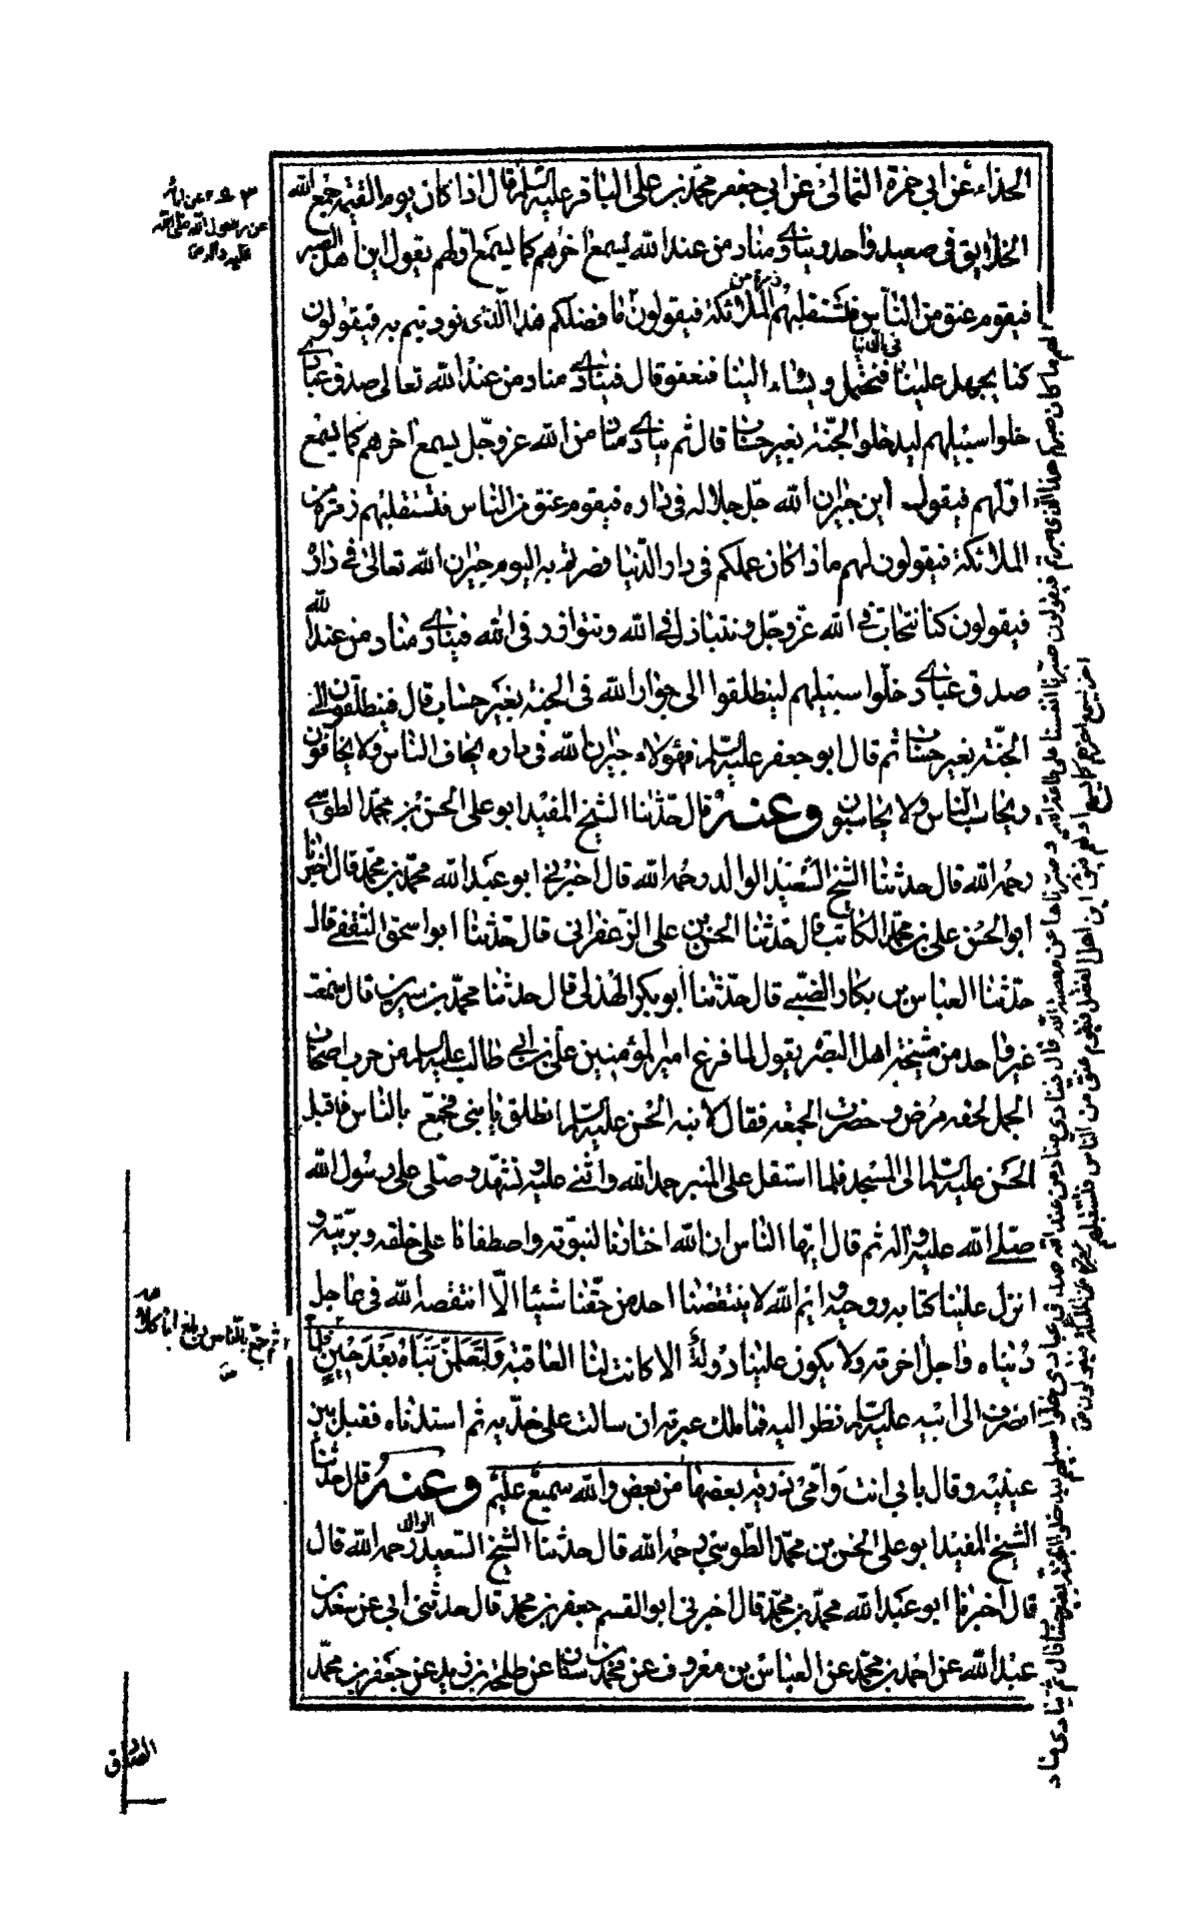 الحذاء عن ابي حمزة الثمالي عن ابي جعفر محمد بن علي الباقر عليه السلم قال اذا كان يوم القيمة جمع الله
الخلايق في صعيد واحد وينادي مناد من عند الله يسمع اخرهم كما يسمع اولهم يقول اين اهل الصبر
فيقوم عنق من الناس فتستقبلهم زمرة من الملائكة فيقولون ما فضلكم هذا الذي نوديتم به فيقولون
كنا يجهل علينا في الدنيا فنحتمل ويساء الينا فنعفو قال فينادي مناد من عند الله تعالى صدق عبادي
خلوا سبيلهم ليدخلوا الجنة بغير حساب قال ثم ينادي مناد من الله عز وجل يسمع اخرهم كما يسمع
اولهم فيقول اين جيران الله جل جلاله في داره فيقوم عنق من الناس فتستقبلهم زمرة من
الملائكة فيقولون لهم ماذا كان عملكم في دار الدنيا فصرتم به اليوم جيران الله تعالى في داره
فيقولون كنا نتحاب في الله عز وجل ونتباذل في الله ونتوازر في الله فينادي مناد من عند الله
صدق عبادي خلوا سبيلهم لينطلقوا الى جوار الله في الجنة بغير حساب قال فينطلقون الى
الجنة بغير حساب ثم قال ابو جعفر عليه السلم فهؤلاء جيران الله في داره يخاف الناس ولا يخافون
ويحاسب الناس ولا يحاسبون وعنه قال حدثنا الشيخ المفيد ابو علي الحسن بن محمد الطوسي
رحمه الله قال حدثنا الشيخ السعيد الوالد رحمه الله قال اخبرني ابو عبد الله محمد بن محمد قال اخبرنا
ابو الحسن علي بن محمد الكاتب قال حدثنا الحسن بن علي الزعفراني قال حدثنا ابو اسحق الثقفي قال
حدثنا العباس بن بكار الضبي قال حدثنا ابو بكر الهذلي قال حدثنا محمد بن سيرين قال سمعت
غير واحد من مشيخة اهل البصرة يقول لما فرغ امير المؤمنين علي بن ابي طالب عليه السلم من حرب اصحاب
الجمل لحقه مرض وحضرت الجمعة فقال لابنه الحسن عليه السلم انطلق يا بني فجمع بالناس فاقبل
الحسن عليه السلم الى المسجد فلما استقل على المنبر حمد الله واثنى عليه وتشهد وصلى على رسول الله
صلى الله عليه واله ثم قال ايها الناس ان الله اختارنا لنبوته واصطفانا على خلقه وبريته و
انزل علينا كتابه ووحيه وايم الله لا ينتقصنا احد من حقنا شيئا الا انتقصه الله في عاجل
دنياه واجل اخرته ولا يكون علينا دولة الا كانت لنا العاقبة ولتعلمن نباه بعد حين فلما
انصرف الى ابيه عليه السلم نظر اليه فما ملك عبرته ان سالت على خديه ثم استدناه فقبل بين
عينيه وقال بابي انت وامي ذرية بعضها من بعض والله سميع عليم وعنه قال حدثنا
الشيخ المفيد ابو علي الحسن بن محمد الطوسي رحمه الله قال حدثنا الشيخ السعيد الوالد رحمه الله قال
قال اخبرنا ابو عبد الله محمد بن محمد قال اخبرني ابو القسم جعفر بن محمد قال حدثني ابي عن سعد بن
عبد الله عن احمد بن محمد عن العباس بن معروف عن محمد بن سنان عن طلحة بن زيد عن جعفر بن محمد
عن ابائه
عن رسول الله صلى الله
عليه واله
ثم جمع بالناس وبلغ اباه كلامه
الصادق
لهم ما كان صبركم هذا الذي صبرتم فيقولون صبرنا انفسنا على طاعة الله وصبرناها عن معصية الله قال فينادي مناد من عند الله صدق عبادي خلوا سبيلهم ليدخلوا الجنة بغير حساب قال ثم ينادي مناد
اخر يسمع اخرهم كما يسمع اولهم فيقول اين اهل الفضل فيقوم عنق من الناس فتستقبلهم